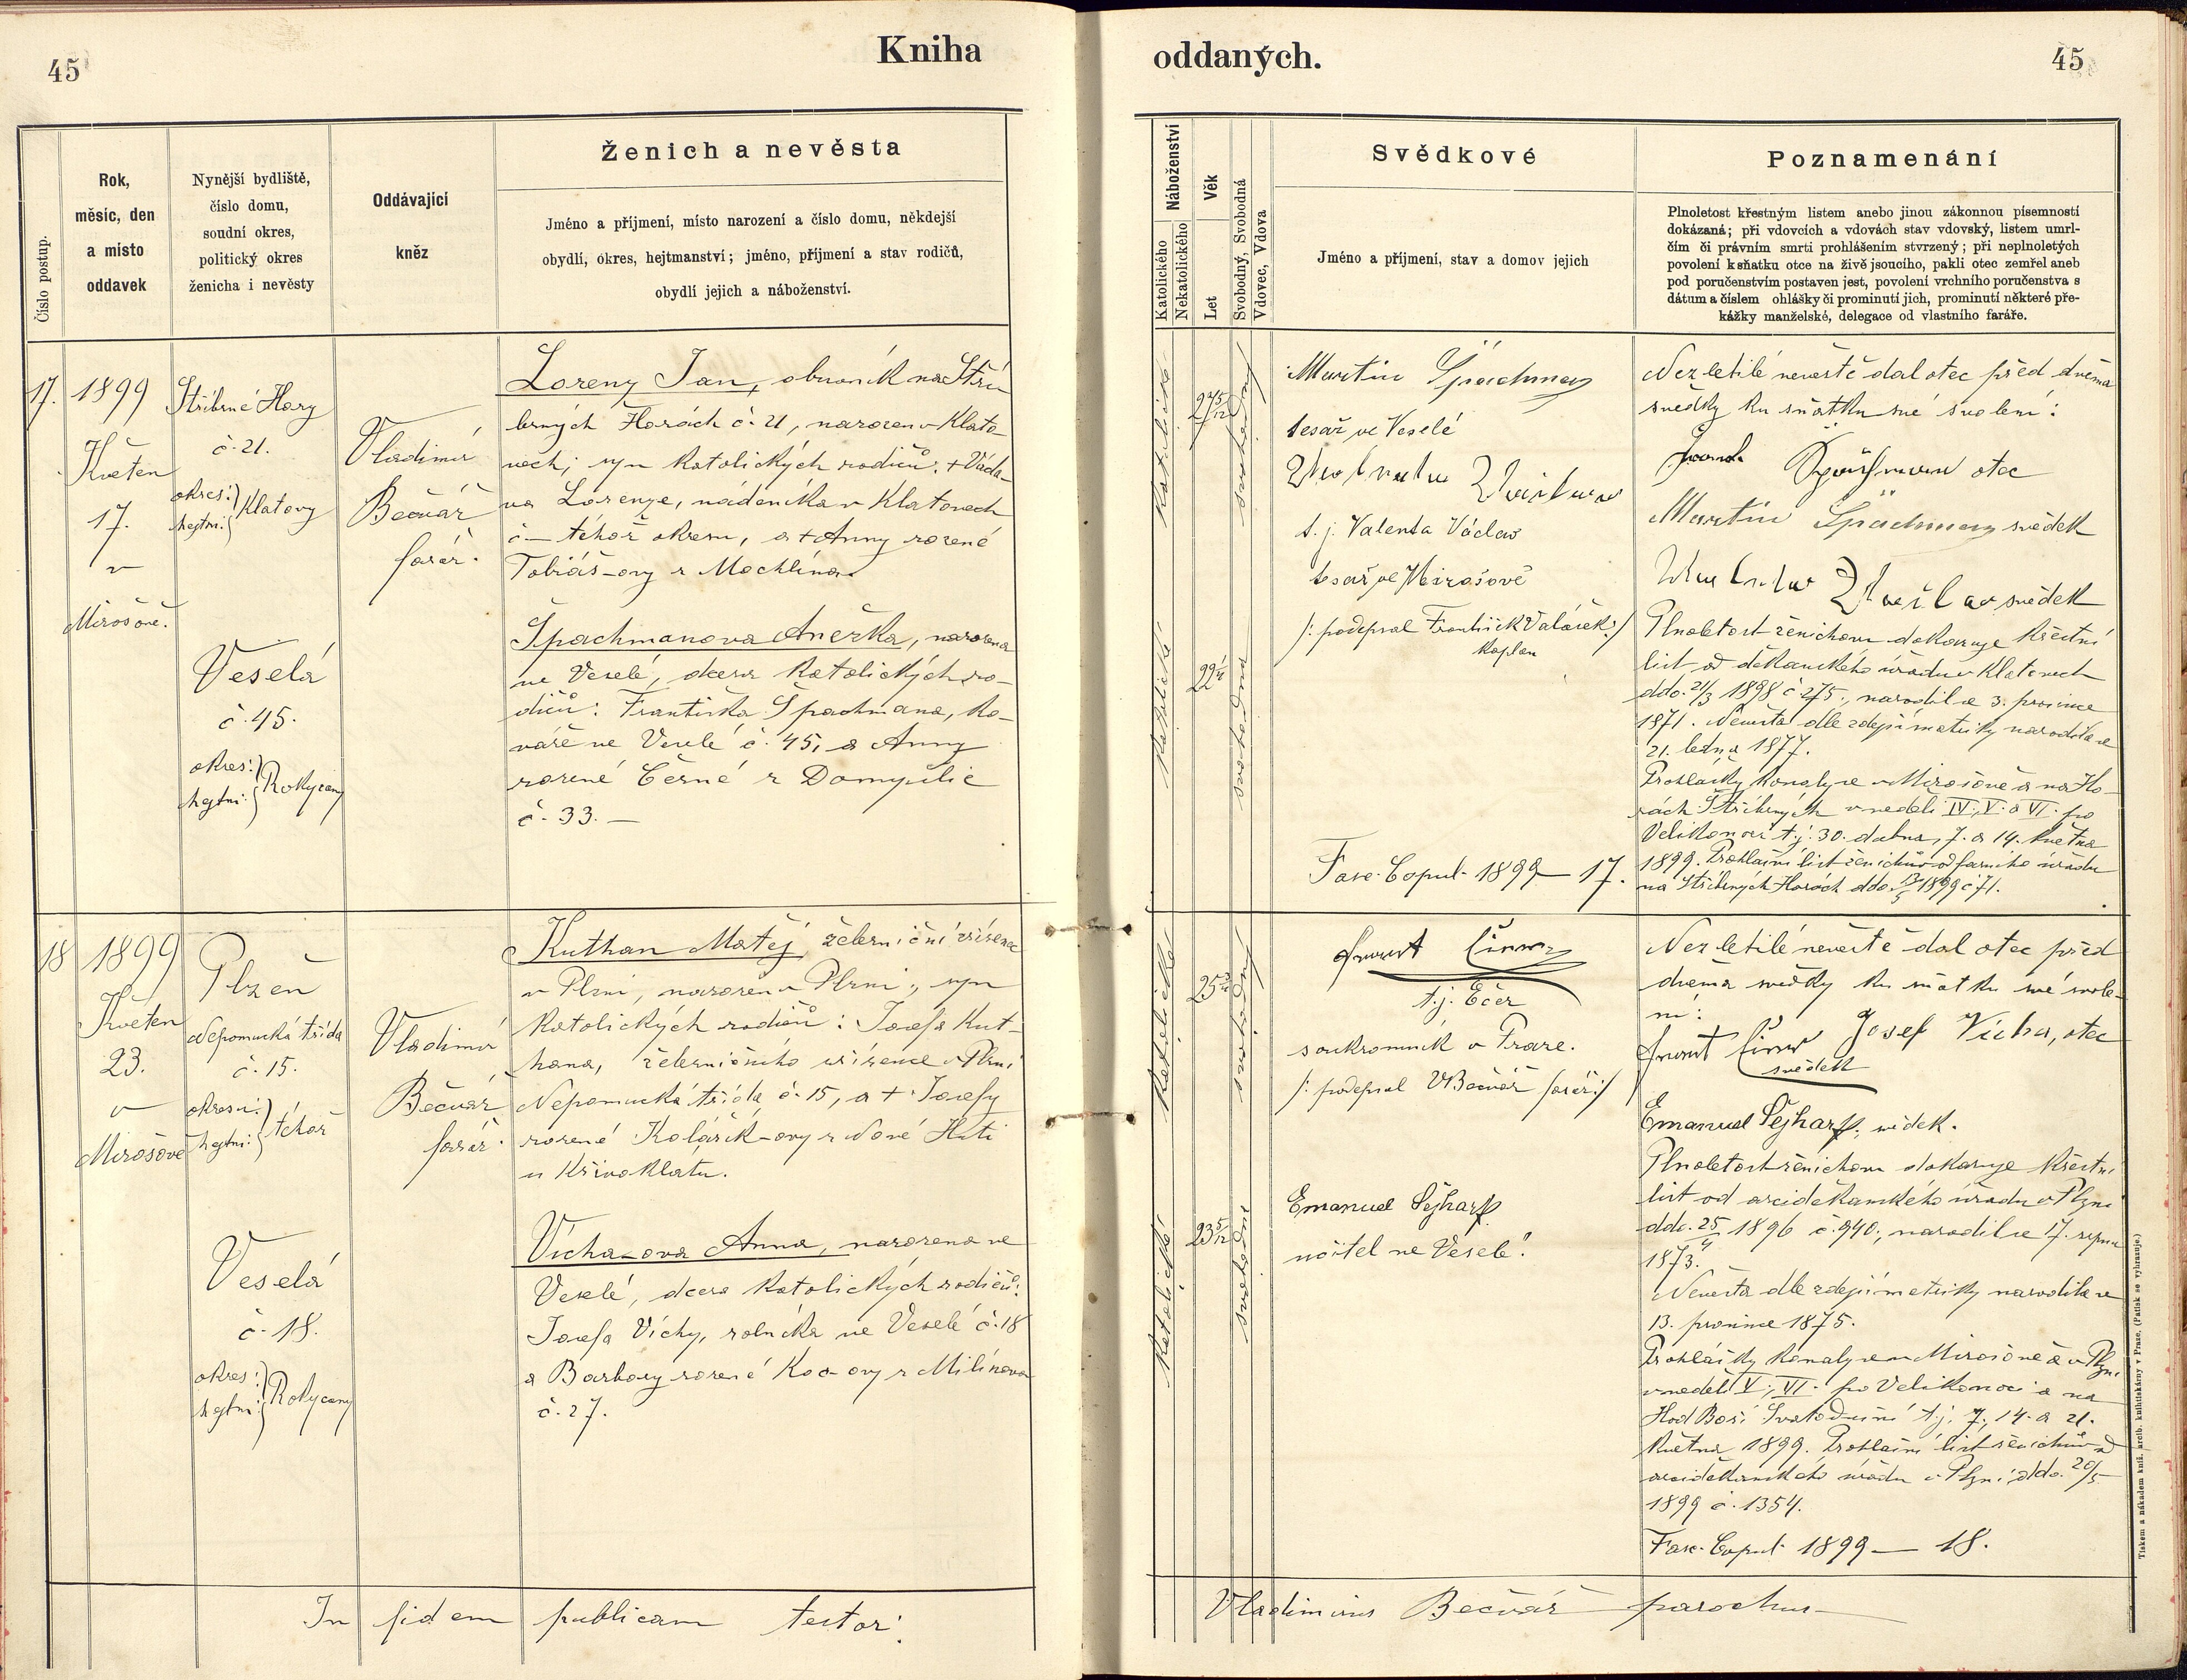 45
Kniha
Číslo postup.
Rok,
měsíc, den
a místo
oddavek
Nynější bydliště,
číslo domu,
soudní okres,
politický okres
ženicha i nevěsty
Oddávající
kněz
Ženich a nevěsta
Jméno a příjmení, místo narození a číslo domu, někdejší
obydlí, okres, hejtmanství; jméno, příjmení a stav rodičů,
obydlí jejich a náboženství.
17.
1899
Květen
17.
v
Mirošově.
Stříbrné Hory
č. 21.
okres:
hejtm:
Klatovy
Vladimír
Bečvář
farář.
Loreny Jan, obuvník na Stří-
brných Horách č. 21, narozen v Klato-
vech; syn katolických rodičů: + Václa-
va Lorenze, nádeníka v Klatovech
č — téhož okresu, a + Anny rozené
Tobiáš-ovy z Mochtína.
Veselá
č. 45.
okres:
hejtm:
Rokycany
Špachmanova Anežka, narozena
ve Veselé, dcera katolických ro-
dičů: Františka Špachmana, ko-
váře ve Veselé č. 45, a Anny
rozené Černé z Domyslic
č. 33. —
18
1899
Květen
23.
v
Mirošově
Plzeň
Nepomucká třída
č. 15.
okresu:
hejtm:
téhož
Vladimír
Bečvář
farář.
Kuthan Matěj, železniční zřízenec
v Plzni, narozen v Plzni, syn
katolických rodičů: Josefa Kut-
hana, železničního zřízence v Plzni
Nepomucká třída č. 15, a + Josefy
rozené Kolářík-ovy z Nové Huti
u Křivoklatu.
Veselá
č. 18.
okres:
hejtm:
Rokycany
Vícha-ova Anna, narozena ve
Veselé, dcera katolických rodičů:
Josefa Víchy, rolníka ve Veselé č. 18
a Barbory rozené Koc-ovy z Milínova
č. 27.
In fidem publicam testor:
oddaných.
45
Náboženství
Katolického
Nekatolického
Věk
Let
Svobodný, Svobodná
Vdovec, Vdova
Svědkové
Jméno a příjmení, stav a domov jejich
Poznamenání
Plnoletost křestným listem anebo jinou zákonnou písemností
dokázaná; při vdovcích a vdovách stav vdovský, listem umrl-
čím či právním smrti prohlášením stvrzený; při neplnoletých
povolení k sňatku otce na živě jsoucího, pakli otec zemřel aneb
pod poručenstvím postaven jest, povolení vrchního poručenstva s
dátum a číslem ohlášky či prominutí jich, prominutí některé pře-
kážky manželské, delegace od vlastního faráře.
katolické
27 5/12
svobodný
Martin Špachman
tesař ve Veselé
t. j. Valenta Václav
tesař ve Mirošově
/: podepsal František Valášek :/
kaplan
Nezletilé nevěstě dal otec před dvěma
svědky ku sňatku své svolení:
Špachman otec
Martin Špachman svědek
svědek
Plnoletost ženichovu dokazuje křestní
list od děkanského úřadu v Klatovech
ddo. 21/3 1898 č. 275., narodil se 3. prosince
1871. Nevěsta dle zdejší matriky narodila se
21. ledna 1877.
Prohlášky konaly se v Mirošově a na Ho-
rách Stříbrných v neděli IV., V. a VI. po
Velikonoci t.j. 30. dubna, 7. a 14. května
1899. Prohlašní list ženichův od farního úřadu
na Stříbrných Horách ddo. 1899 č 71.
katolické
22 1/4
svobodná
Fasc. Copul. 1899 — 17.
katolické
25
svobodný
t.j. Ečer
soukromník v Praze.
/: podepsal VBečvář farář :/
Nezletilé nevěstě dal otec před
dvěma svědky ku sňatku své svole-
ní:
Josef Vícha, otec
svědek
Emanuel Sejharf, svědek.
Plnoletost ženichovu dokazuje křestní
list od arciděkanského úřadu v Plzni
ddo. 25/4 1896 č. 940., narodil se 17. srpna
1873.
Nevěsta dle zdejší matriky narodila se
13. prosince 1875.
Prohlášky konaly se v Mirošově a v Plzni
v neděli V., VI. po Velikonoci a na
Hod Boží Svatodušní t.j. 7., 14. a 21.
května 1899. Prohlašní list ženichův od
arciděkanského úřadu v Plzni ddo. 20/5
1899 č. 1354.
Fasc. Copul. 1899 — 18.
katolické
23 5/12
svobodná
Emanuel Sejharf
učitel ve Veselé.
Vladimirus Bečvář parochus
Tiskem a nákladem kníž. arcib. knihtiskárny v Praze. (Patisk se vyhrazuje.)